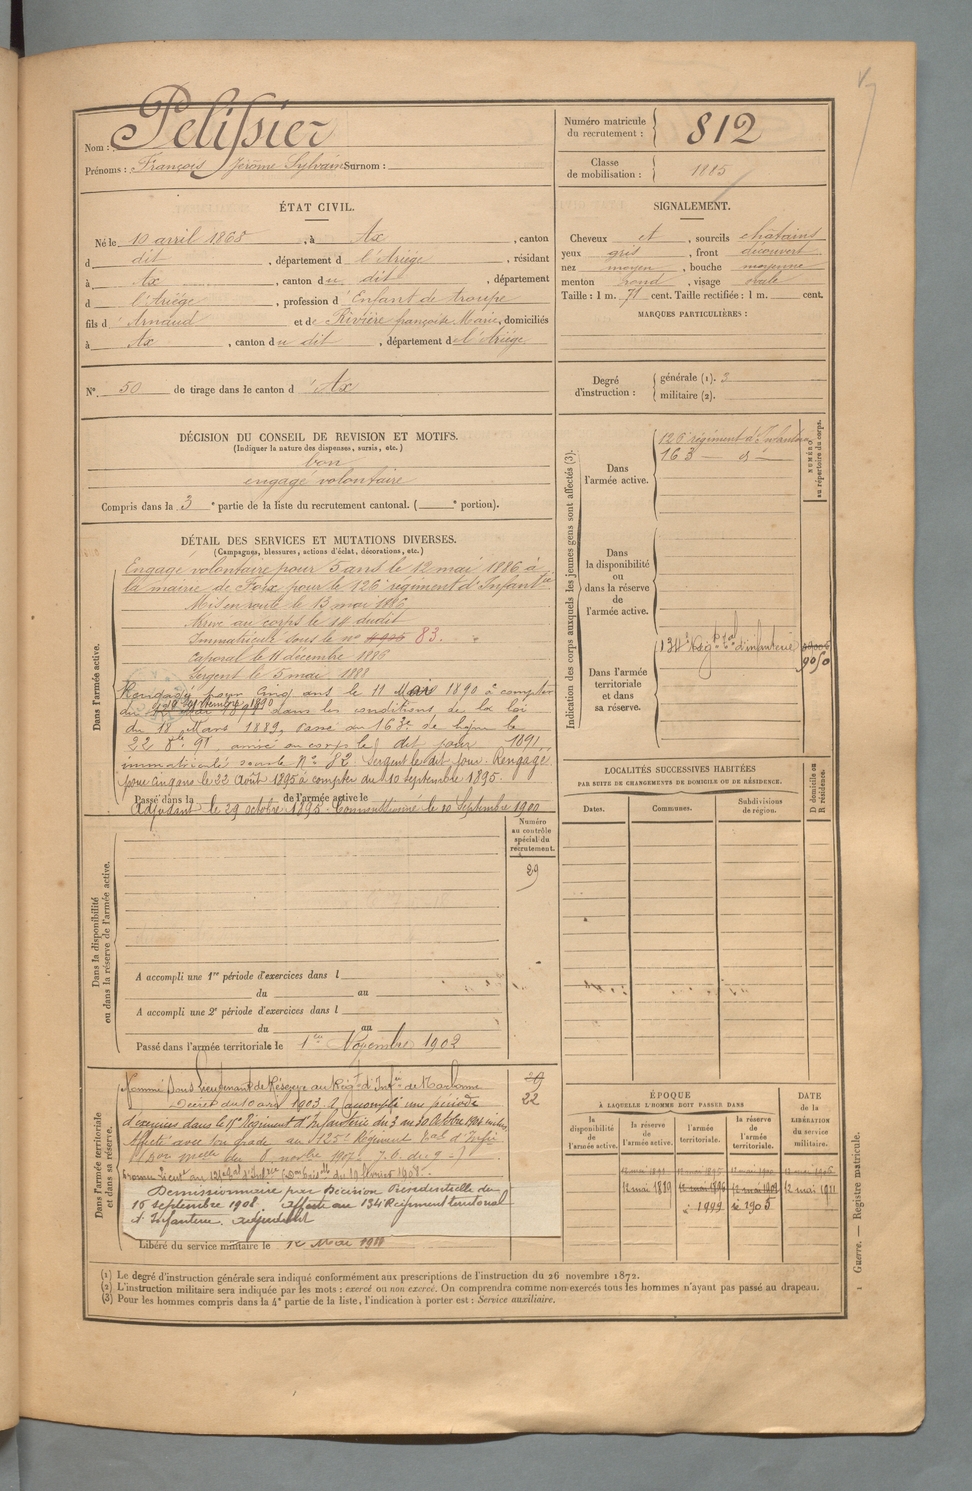 Nom : Pelissier
Prénoms : François Jérôme Sylvain Surnom :
Numéro matricule
du recrutement : 812
Classe
de mobilisation : 1885
ÉTAT CIVIL.
Né le 10 avril 1868, à Ax, canton
d dit, département d l'Ariège, résidant
à Ax, canton du dit, département
d l'Ariège, profession d Enfant de troupe
fils d Arnaud et de Rivière françoise Marie, domiciliés
à Ax, canton du dit, département de l'Ariège
N° 50 de tirage dans le canton d'Ax
SIGNALEMENT.
Cheveux et, sourcils châtains
yeux gris, front découvert
nez moyen, bouche moyenne
menton rond, visage ovale
Taille : 1 m. 71 cent. Taille rectifiée : 1 m. cent.
MARQUES PARTICULIÈRES :
Degré
d'instruction :
générale (1). 3
militaire (2).
DÉCISION DU CONSEIL DE REVISION ET MOTIFS.
(Indiquer la nature des dispenses, sursis, etc.)
bon
engagé volontaire
Compris dans la 3 e partie de la liste du recrutement cantonal. ( e portion).
DÉTAIL DES SERVICES ET MUTATIONS DIVERSES.
(Campagnes, blessures, actions d'éclat, décorations, etc.)
Dans l'armée active.
Engagé volontaire pour 5 ans le 12 mai 1886 à
la mairie de Foix pour le 126e régiment d'Infantie
Mis en route le 13 mai 1886
Arrivé au corps le 14 dudit
Immatriculé sous le no 83.
Caporal le 11 décembre 1886
Sergent le 5 mai 1888
Rengagé pour cinq ans le 11 Mars 1890 à compter
du 1890 dans les conditions de la loi
du 18 Mars 1889, passé au 163e de ligne le
22 8bre 91 arrivé au corps le dit jour 1891,
immatriculé sous le No 82 Sergent le dit jour. Rengagé
pour cinq ans le 22 Août 1895 à compter du 10 septembre 1895.
Passé dans la de l'armée active le
Adjudant le 29 octobre 1895 Commissionné le 10 Septembre 1900
Indication des corps auxquels les jeunes gens sont affectés (3).
Dans
l'armée active.
126 régiment d'Infanterie
163 — d —
NUMÉRO
au répertoire du corps.
Dans
la disponibilité
ou
dans la réserve
de
l'armée active.
Dans l'armée
territoriale
et dans
sa réserve.
134e Régt tal d'infanterie
9050
Dans la disponibilité
ou dans la réserve de l'armée active.
Numéro
au contrôle
spécial du
recrutement.
29
A accompli une 1re période d'exercices dans l
du au
A accompli une 2e période d'exercices dans l
du au
Passé dans l'armée territoriale le 1er Novembre 1902
LOCALITÉS SUCCESSIVES HABITÉES
PAR SUITE DE CHANGEMENTS DE DOMICILE OU DE RÉSIDENCE.
Dates. Communes. Subdivisions
de région.
D domicile ou
R résidence.
Dans l'armée territoriale
et dans sa réserve.
Nommé Sous Lieutenant de Réserve au Régt d'Infie de Narbonne
Décret du 10 avril 1903. A accompli une période
d'exercices dans le Régiment d'Infanterie du 3 au 30 1904
Affecté avec son grade au 125e Régiment d'Infie
22
Démissionnaire par Décision Présidentielle du
15 septembre 1908. Affecté au 134 Régiment territorial
d'Infanterie. Adjudant
Libéré du service militaire le 12 Mai 1911
ÉPOQUE
À LAQUELLE L'HOMME DOIT PASSER DANS
la
disponibilité
de
l'armée active.
la réserve
de
l'armée active.
l'armée
territoriale.
la réserve
de
l'armée
territoriale.
DATE
de la
LIBÉRATION
du service
militaire.
12 mai 1891 12 mai 1895 12 mai 1906
12 mai 1896 12 mai 1902 12 mai 1911
1899 1905
(1) Le degré d'instruction générale sera indiqué conformément aux prescriptions de l'instruction du 26 novembre 1872.
(2) L'instruction militaire sera indiquée par les mots : exercé ou non exercé. On comprendra comme non exercés tous les hommes n'ayant pas passé au drapeau.
(3) Pour les hommes compris dans la 4e partie de la liste, l'indication à porter est : Service auxiliaire.
Guerre. — Registre matricule.